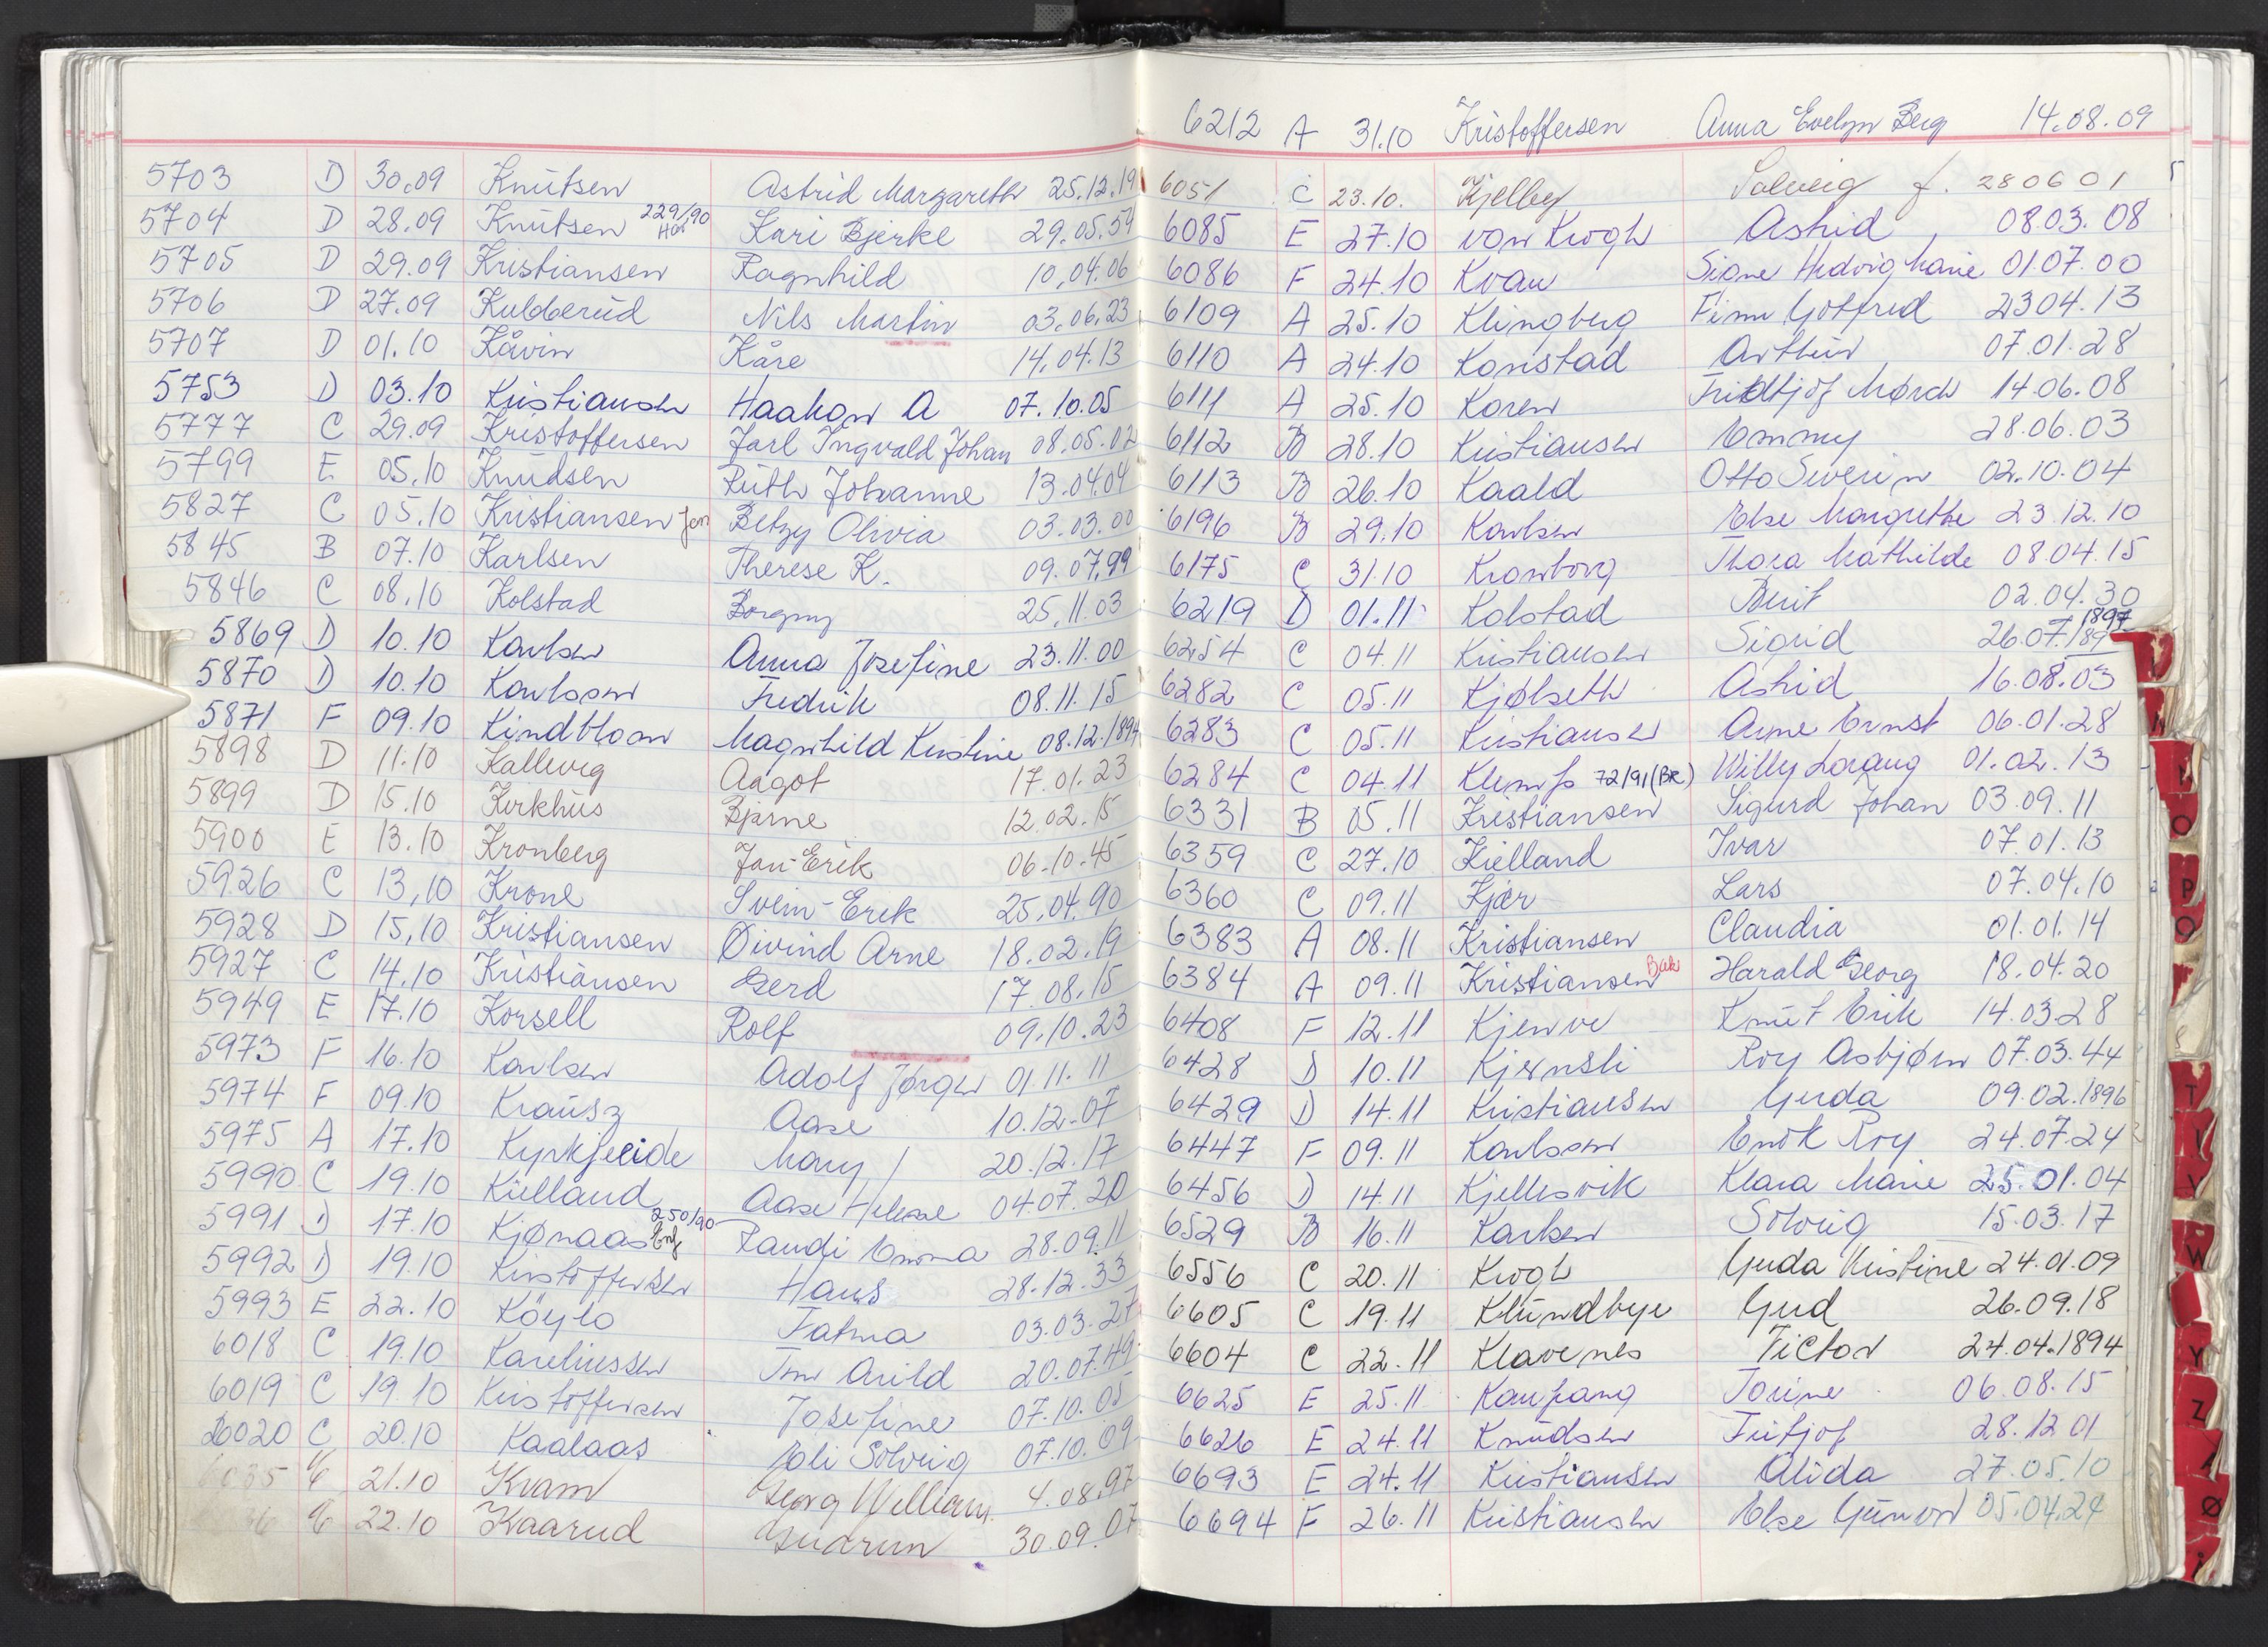 5703 D 30.09 Knutsen Astrid Margareth 25.12.19
5704 D 28.09 Knutsen 229/90 Kari Bjerke 29.05.59
5705 D 29.09 Kristiansen Ragnhild 10.04.06
5706 D 27.09 Kulderud Nils Martin 03.06.23
5707 D 01.10 Kåvin Kåre 14.04.13
5753 D 03.10 Kristiansen Haakon A 07.10.05
5777 C 29.09 Kristoffersen Jarl Ingvald Johan 08.05.02
5799 E 05.10 Knudsen Ruth Johanne 13.04.04
5827 C 05.10 Kristiansen Betzy Olivia 03.03.00
5845 B 07.10 Karlsen Therese K. 09.07.99
5846 C 08.10 Kolstad Borgny 25.11.03
5869 D 10.10 Karlsen Anna Josefine 23.11.00
5870 D 10.10 Karlsson Fredrik 08.11.15
5871 F 09.10 Kindblom Magnhild Kristine 08.12.1894
5898 D 11.10 Kallevig Aagot 17.01.23
5899 D 15.10 Kirkhus Bjarne 12.02.15
5900 E 13.10 Kronberg Jan-Erik 06.10.45
5926 C 13,10 Krone Svein-Erik 25.04.90
5928 D 15,10 Kristiansen Øivind Arne 18.02.19
5927 C 14.10 Kristiansen Gerd 17.08.15
5949 E 17.10 Korsell Rolf 09.10.23
5973 F 16.10 Karlsen Adolf Jørgen 01.11.11
5974 F 09.10 Krausz Aase 10.12.07
5975 A 17.10 Kyrkjeeide Mary 20.12.17
5990 C 19.10 Kielland Aase Helene 04.07.20
5991 D 17.10 Kjønaas 250/90 Randi Emma 28.09.11
5992 D 19.10 Kristoffersen Hans 28.12.33
5993 E 22.10 Köylo Fatma 03.03.27
6018 C 19.10 Kareliussen Tom Arild 20.07.49
6019 C 19.10 Kristoffersen Josefine 07.10.05
6020 C 20.10 Kaalaas Eli Solveig 07.10.09
6035 C 21.10 Kvam Georg William 4.08.97
36 C 22.10 Kaarud Gudrun 30.09.07
6212 A 31.10 Kristoffersen Anna Evelyn Berg 14.08.09
6051 C 23.10. Kjelby Solveig f. 280601
6085 E 27.10 von Krogh Astrid 08.03.08
6086 F 24.10 Kvan Signe Hedvig Marie 01.07.00
6109 A 25.10 Klingberg Finn Gotfred 23.04.13
6110 A 24.10 Konstad Arthur 07.01.28
6111 A 25.10 Koren Fridtjof Mørch 14.06.08
6112 B 28.10 Kristiansen Emmy 28.06.03
6113 B 26.10 Kaald Otto Severin 02.10.04
6196 B 29.10 Karlsen Else Margrethe 23.12.10
6175 C 31.10 Kronborg Thora Mathilde 08.04.15
6219 D 01.11 Kolstad Berit 02.04.30
6254 C 04.11 Kristiansen Sigrid 26.07.1897
6282 C 05.11 Kjølseth Astrid 16.08.03
6283 C 05.11 Kristiansen Arne Ernst 06.01.28
6284 C 04.11 Klemp 72/91 (BK) Willy Lorang 01.02.13
6331 B 05.11 Kristiansen Sigurd Johan 03.09.11
6359 C 27.10 Kielland Ivar 07.01.13
6360 C 09.11 Kjær Lars 07.04.10
6383 A 08.11 Kristiansen Claudia 01.01.14
6384 A 09.11 Kristiansen Bak Harald Georg 18.04.20
6408 F 12.11 Kjenve Knut Erik 14.03.28
6428 D 10.11 Kjernsli Roy Asbjørn 07.03.44
6429 D 14.11 Kristiansen Gerda 09.02.1896
6447 F 09.11 Karlsson Enok Roy 24.07.24
6456 D 14.11 Kjellesvik Klara Marie 25.01.04
6529 B 16.11 Karlsen Solveig 15.03.17
6556 C 20.11 Krogh Gerda Kristine 24.01.09
6605 C 19.11 Klundbye Gerd 26.09.18
6604 C 22.11 Klavenes Victor 24.04.1894
6625 E 25.11 Kaupang Torine 06.08.15
6626 E 24.11 Knudsen Fritjof 28.12 01
6693 E 24.11 Kristiansen Alida 27.05.10
6694 F 26.11 Kristiansen Else Gunvor 05.04.24
O
P
Q
T
V
W
Y
Z
Ø